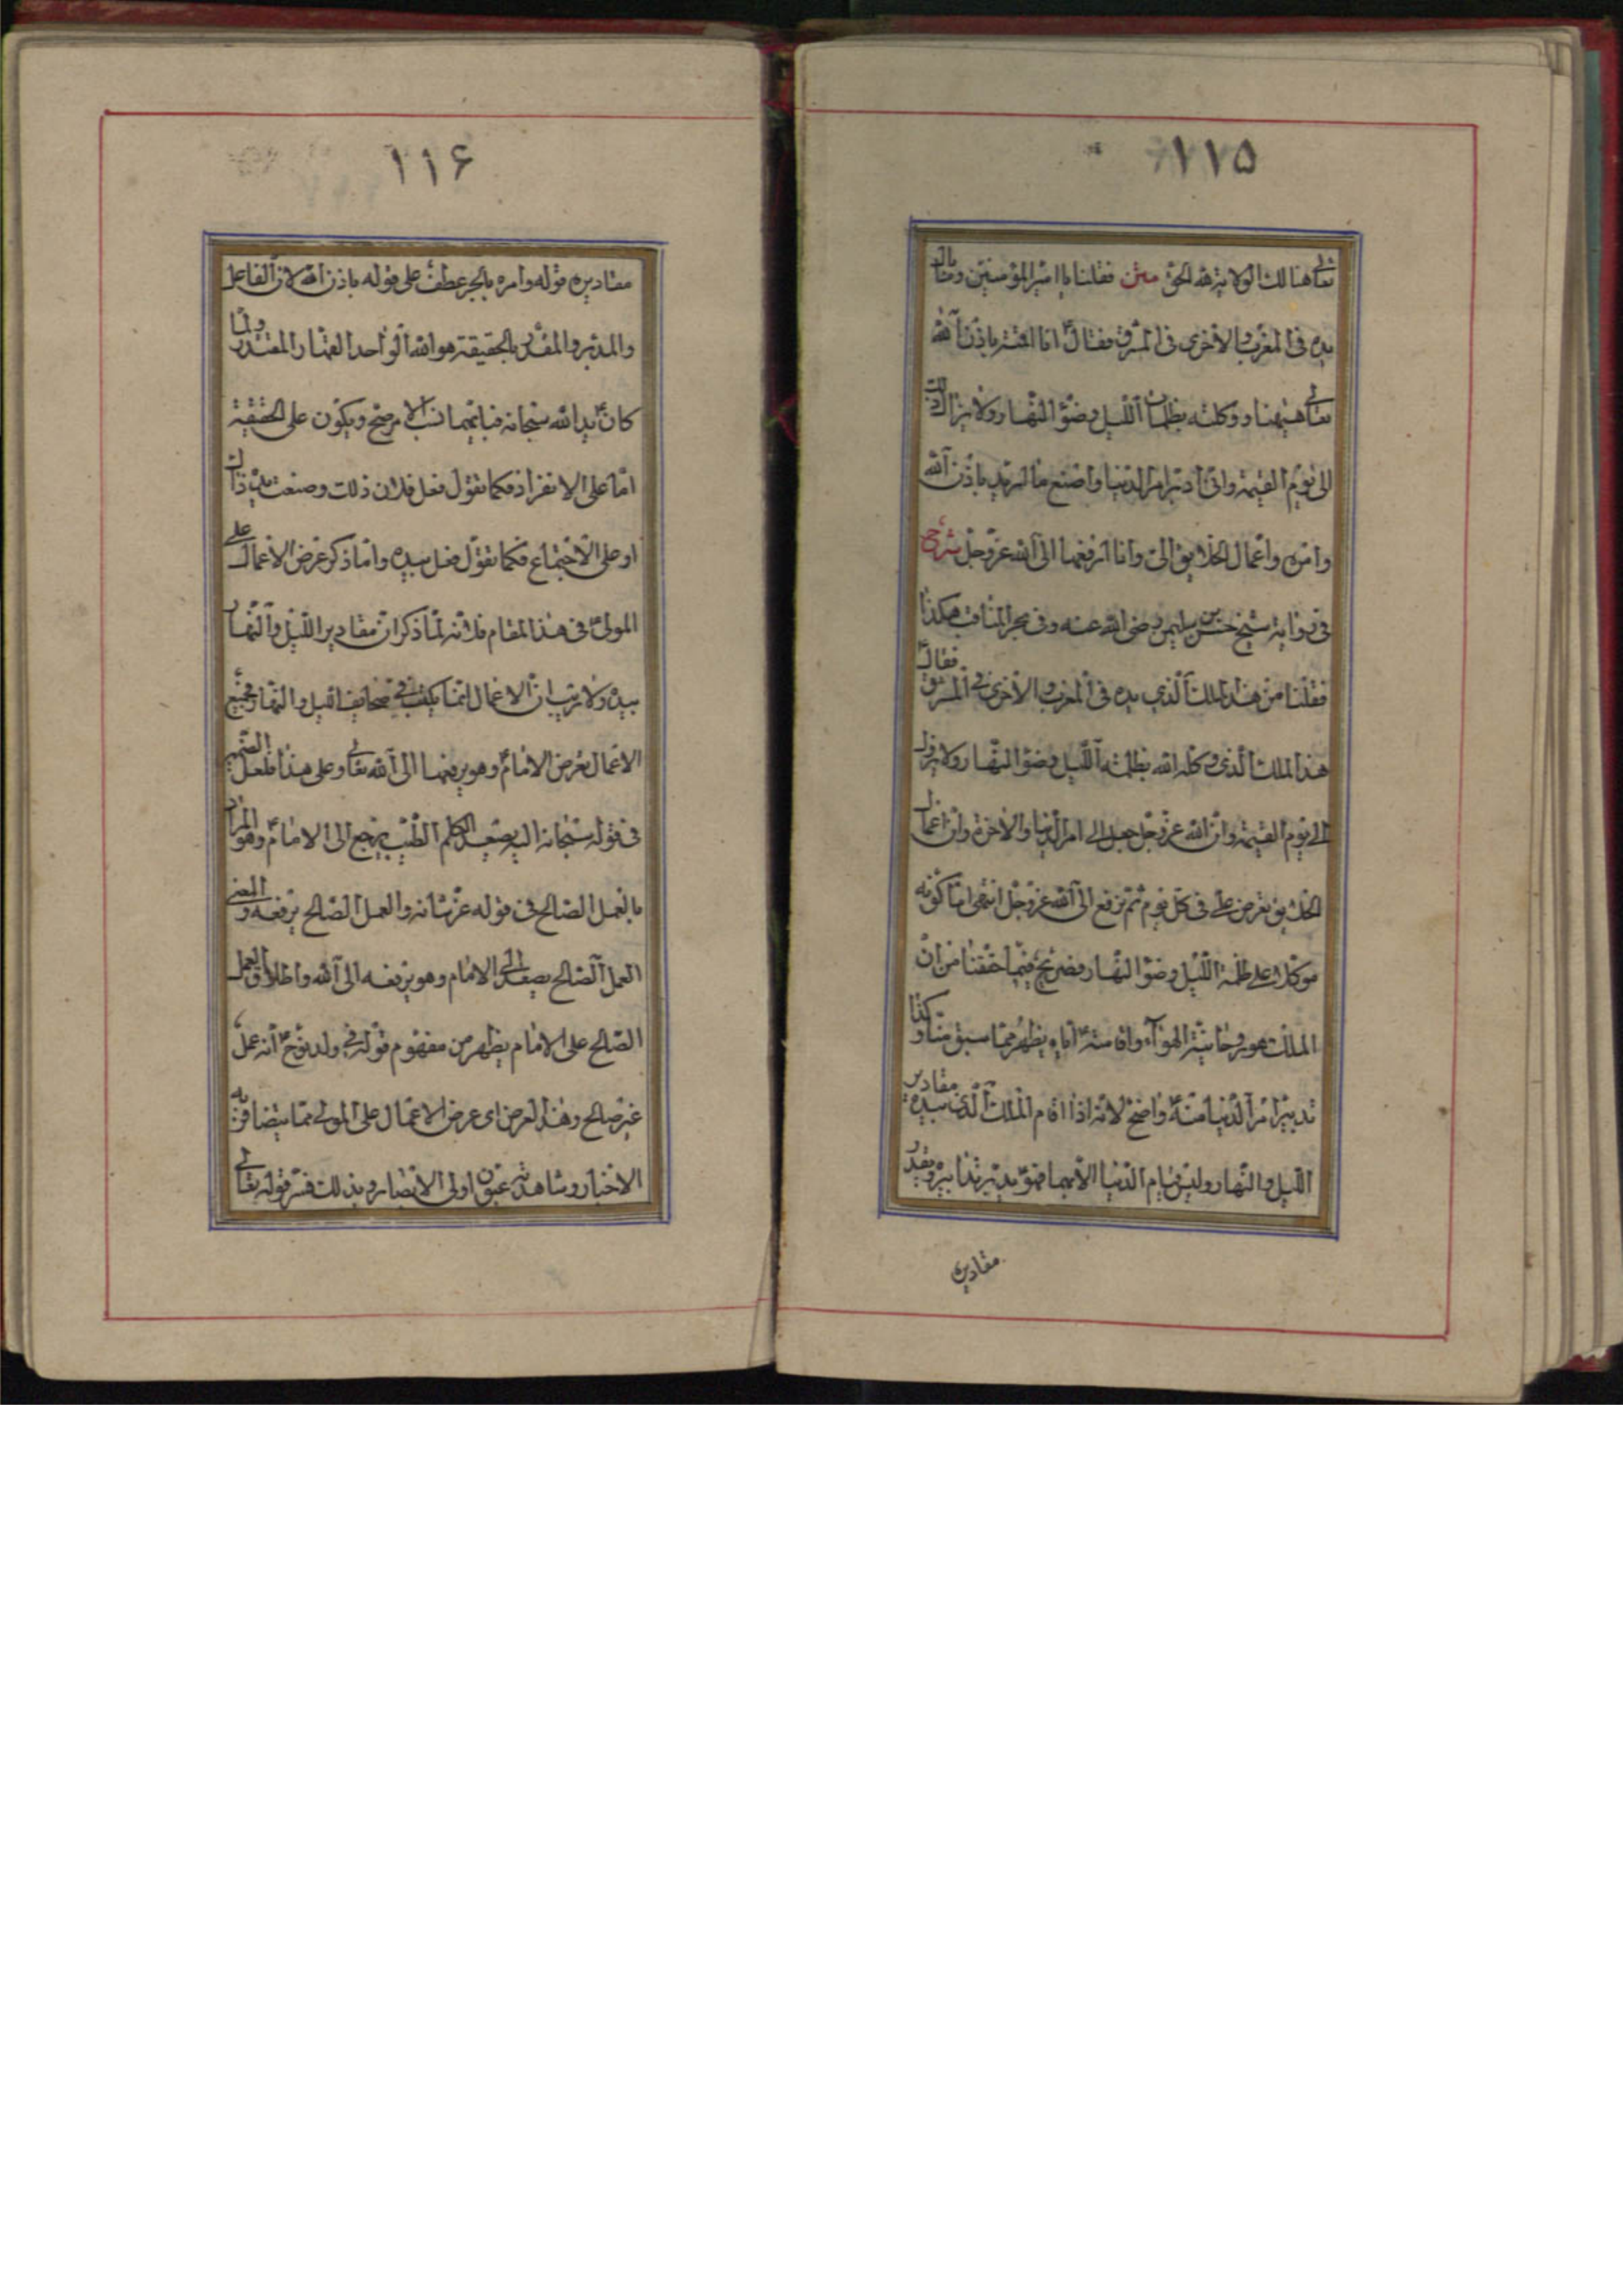 ١١۵
تعالى هنالك الولاية لله الحق متن فقلنا يا امير المؤمنين وما بال
يده في المغرب والاخرى في المشرق فقال انا اقمته باذن الله
تعالى هيهنا ووكلته بظلمات الليل وضوء النهار ولا يزال كذلك
الى يوم القيمة واني ادبر امر الدنيا واصنع ما اريد باذن الله
وامره واعمال الخلايق الى وانا ارفعها الى الله عز وجل شرح
في رواية شيخ حسن بن سليمن رضى الله عنه وفي بحر المناقب هكذا
فقلنا من هذا الملك الذي يده في المغرب والاخرى في المشرق فقال
هذا الملك الذي وكله الله بظلمة الليل وضوء النهار ولا يزول
الى يوم القيمة وان الله عز وجل جعل الي امر الدنيا والاخرة وان اعمال
الخلايق تعرض علي في كل يوم ثم ترفع الى الله عز وجل انتهى اما كونه
موكلا على ظلمة الليل وضوء النهار فصريح فيما حققنا من ان
الملك هو روحانية الهواء واقامته اياه يظهر مما سبق منا وكذا
تدبير امر الدنيا منه واضح لانه اذا اقام الملك الذي بيده مقادير
الليل والنهار وليس قيام الدنيا الا بهما فهو يدبر تدابيره ويقدر
مقاديره
١١۶
مقاديره قوله وامره بالجر عطف على قوله باذن الله لان الفاعل
والمدبر والمقدر بالحقيقة هو الله الواحد القهار المقتدر ولما
كان يد الله سبحانه فبايهما نسب الامر صح ويكون على الحقيقة
اما على الانفراد فكما تقول فعل فلان ذلك وصنعت يده ذلك
او على الاجتماع فكما تقول فعل بيده وانما ذكر عرض الاعمال على
المولى في هذا المقام فلانه لما ذكر ان مقادير الليل والنهار
بيده ولا ريب ان الاعمال انما يكتب في صحايف الليل والنهار فجميع
الاعمال تعرض الامام وهو يرفعها الى الله تعالى وعلى هذا فلعل الضمير
في قوله سبحانه اليه يصعد الكلم الطيب يرجع الى الامام وهو المراد
بالعمل الصالح في قوله عز شانه والعمل الصالح يرفعه والمعنى
العمل الصالح يصعد الى الامام وهو يرفعه الى الله واطلاق العمل
الصالح على الامام يظهر من مفهوم قوله في ولد نوح انه عمل
غير صالح وهذا العرض اى عرض الاعمال على المولى مما يتضافر به
الاخبار وشاهدته عيون اولى الابصار وبذلك فسر قوله تعالى